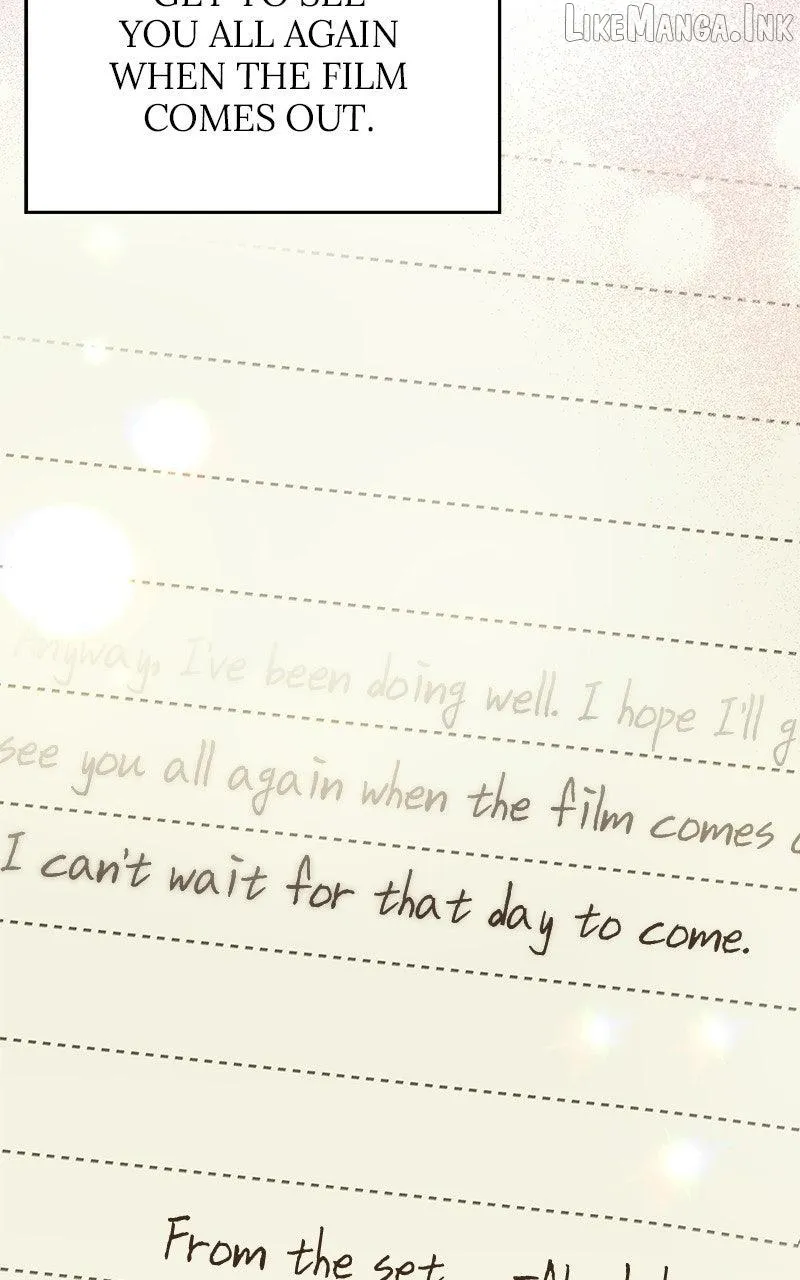 GET TO SEE
YOU ALL AGAIN
WHEN THE FILM
COMES OUT.
LIKEMANGA.INK
Anyway, I've been doing well. I hope I'll
see you all again when the film comes
I can't wait for that day to come.
From the set